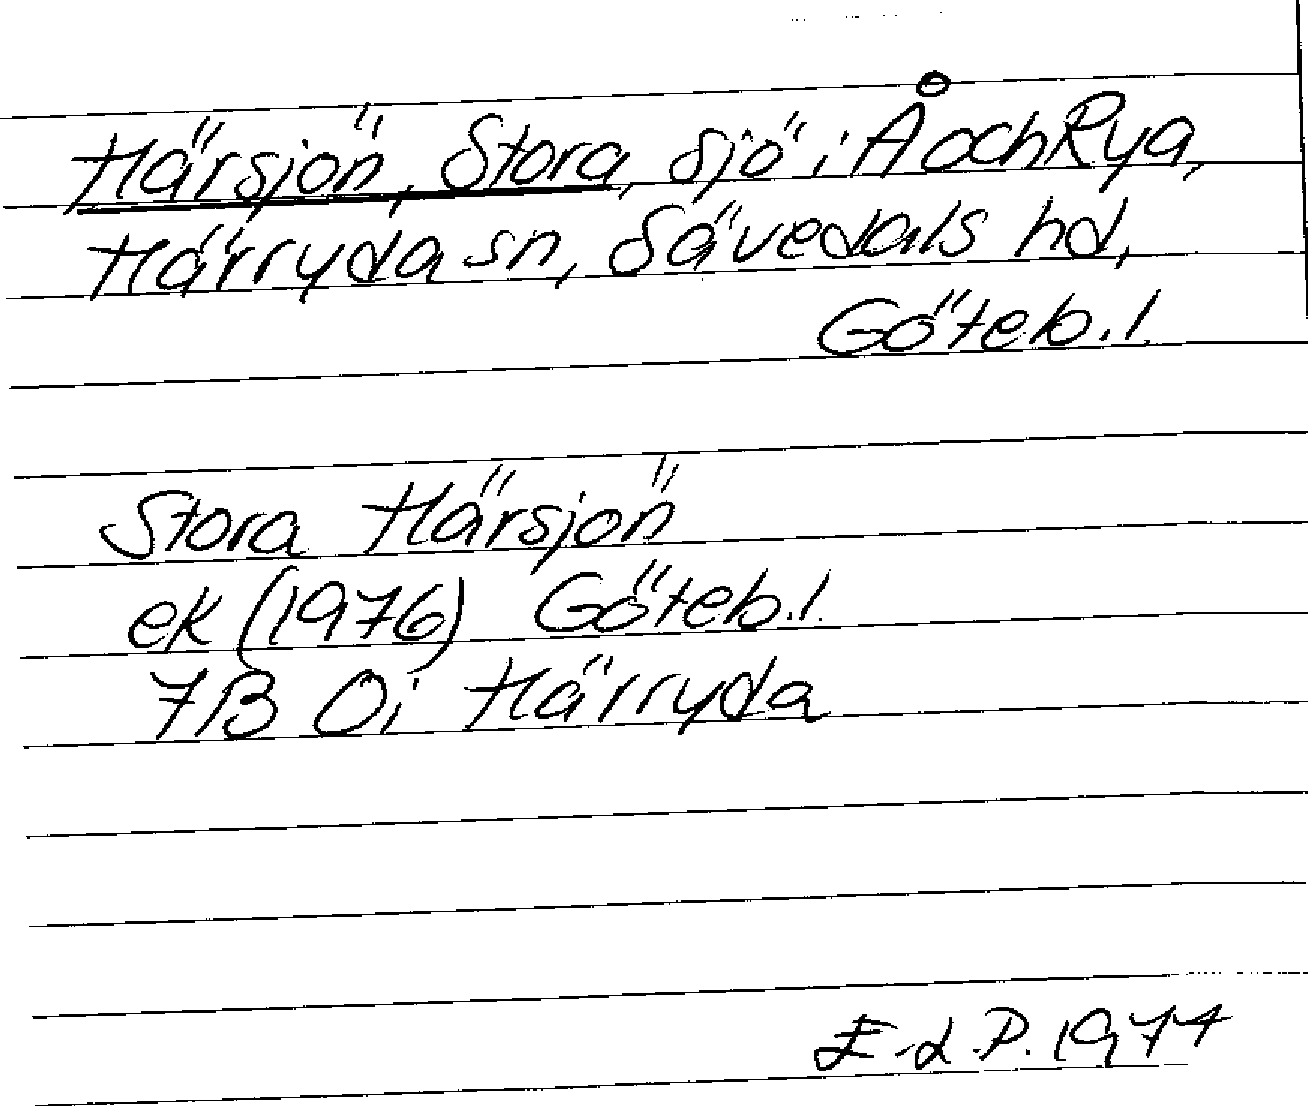 Härsjön, Stora, sjö i Å och Rya,
Härryda sn, Sävedals hd,
Göteb. l.
Stora Härsjön
ek (1976) Göteb. l.
7B 0i Härryda
1977